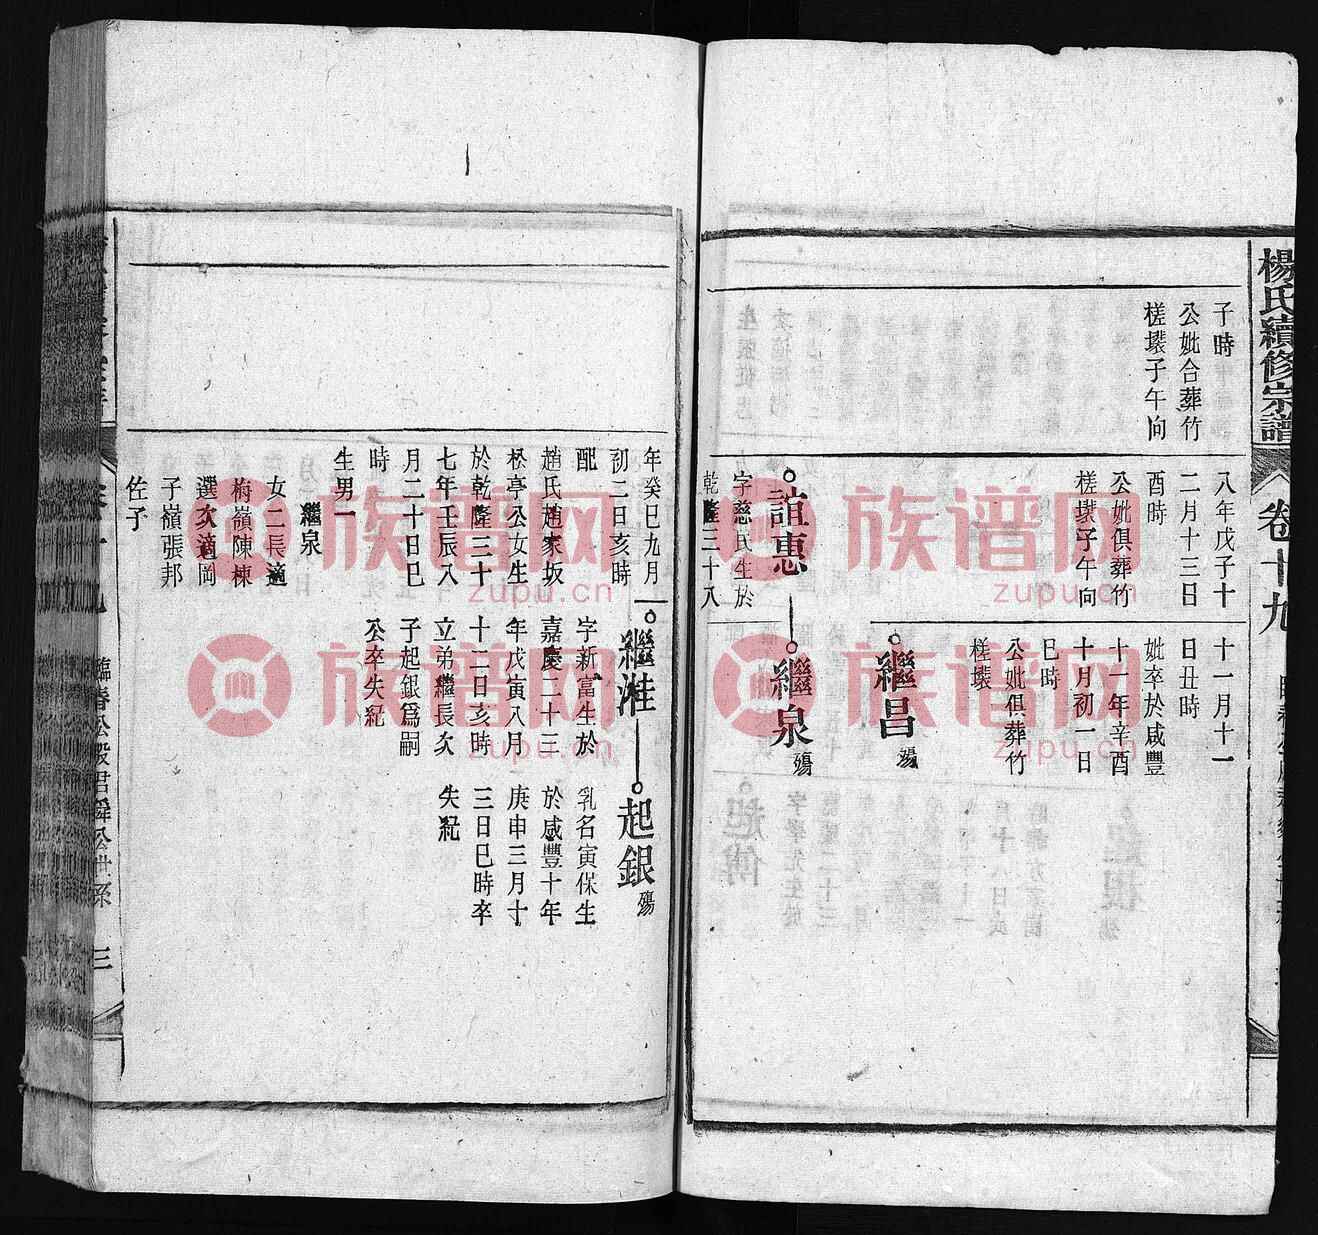 楊氏續修宗譜
卷十九
子時
公妣合葬竹
槎壋子午向
八年戊子十
二月十三日
酉時
公妣俱葬竹
槎壋子午向
十一月十一
日丑時
妣卒於咸豐
十一年辛酉
十月初一日
巳時
公妣俱葬竹
槎壋
繼昌 殤
誼惠
繼泉 殤
字慈民生於
乾隆三十八
年癸巳九月
初二日亥時
配
趙氏趙家坂
松亭公女生
於乾隆三十
七年壬辰八
月二十日巳
時
生男一
繼泉
女二長適
梅嶺陳棟
選次適岡
子嶺張邦
佐子
繼溎
字新富生於
嘉慶二十三
年戊寅八月
十二日亥時
立弟繼長次
子起銀爲嗣
公卒失紀
起銀 殤
乳名寅保生
於咸豐十年
庚申三月十
三日巳時卒
失紀
臨春公殷君舜公世系
三
族谱网
zupu.cn
族谱网
zupu.cn
族谱网
zupu.cn
族谱网
zupu.cn